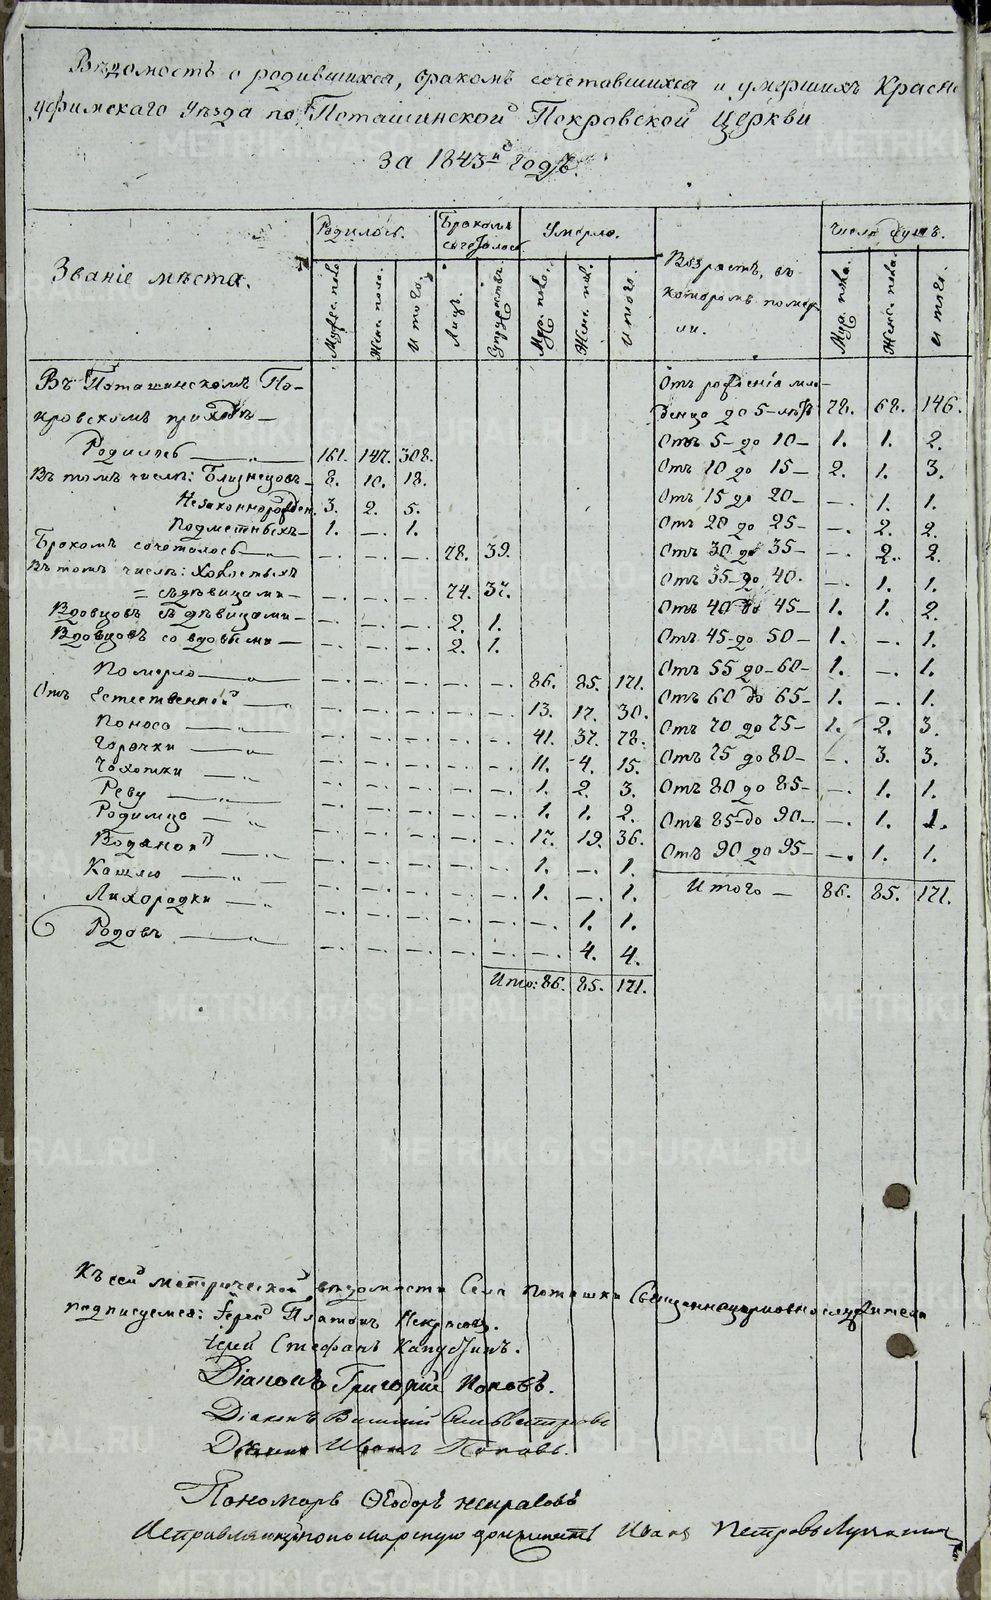 Вѣдомость о родившихся, бракомъ сочетавшихся и умершихъ Красно
уфимскаго Уѣзда по Поташинской Покровской Церкви
за 1843й годъ.
Званіе мѣста.
Родилось.
Бракомъ сочеталось
Умерло.
Возрастъ, въ которомъ помер-
ли.
Число душъ.
Муж. пола.
Женс. пола.
И того.
Лицъ.
Супружествъ.
Муж. пола.
Женс. пол.
И того.
Муж. пола.
Женс. пола.
И того.
Въ Поташинскомъ По-
кровскомъ приходѣ —
Родилось — „ — 161. 147. 308.
Въ томъ числѣ: Близнецовъ — 8. 10. 18.
Незаконнорожден. 3. 2. 5.
Подметныхъ — 1. —. 1.
Бракомъ сочеталось — „ — —. —. —. 78. 39.
Въ томъ числѣ: Холостыхъ
= съ дѣвицами — —. —. —. 74. 37.
Вдовцовъ съ дѣвицами — —. —. —. 2. 1.
Вдовцовъ со вдовами — —. —. —. 2. 1.
Померло — „ — —. —. —. —. —. 86. 85. 171.
Отъ Естественной — „ —. —. —. —. —. 13. 17. 30.
Поноса — „ —. —. —. —. —. 41. 37. 78.
Горячки — „ —. —. —. —. —. 11. 4. 15.
Чахотки — „ —. —. —. —. —. 1. 2. 3.
Реву — „ —. —. —. —. —. 1. 1. 2.
Родимца — „ —. —. —. —. —. 17. 19. 36.
Водяной — „ —. —. —. —. —. 1. —. 1.
Кашлю — „ —. —. —. —. —. 1. —. 1.
Лихорадки — „ —. —. —. —. —. —. 1. 1.
Родовъ — „ —. —. —. —. —. —. 4. 4.
Ито: 86. 85. 171.
Отъ рожденія мла-
денца до 5-лѣтъ 78. 68. 146.
Отъ 5- до 10- 1. 1. 2.
Отъ 10 до 15- 2. 1. 3.
Отъ 15 до 20- —. 1. 1.
Отъ 20 до 25- —. 2. 2.
Отъ 30 до 35- —. 2. 2.
Отъ 35- до 40. —. 1. 1.
Отъ 40 до 45- 1. 1. 2.
Отъ 45- до 50- 1. —. 1.
Отъ 55 до -60- 1. —. 1.
Отъ 60 до 65- 1. —. 1.
Отъ 70 до 75- 1. 2. 3.
Отъ 75 до 80- —. 3. 3.
Отъ 80 до 85- —. 1. 1.
Отъ 85- до 90- —. 1. 1.
Отъ 90 до 95- —. 1. 1.
Итого — 86. 85. 171.
Къ сей метрической вѣдомости Села Поташки Священноцерковнослужители
подписуемся: Іерей Платонъ Некрасовъ.
Іерей Стефанъ Капустинъ.
Діаконъ Григорій Поповъ.
Діаконъ Василій
Діаконъ Иванъ Поповъ.
Пономарь Ѳеодоръ Некрасовъ
Исправляющій пономарскую должность Иванъ Петровъ
METRIKI.GASO-URAL.RU